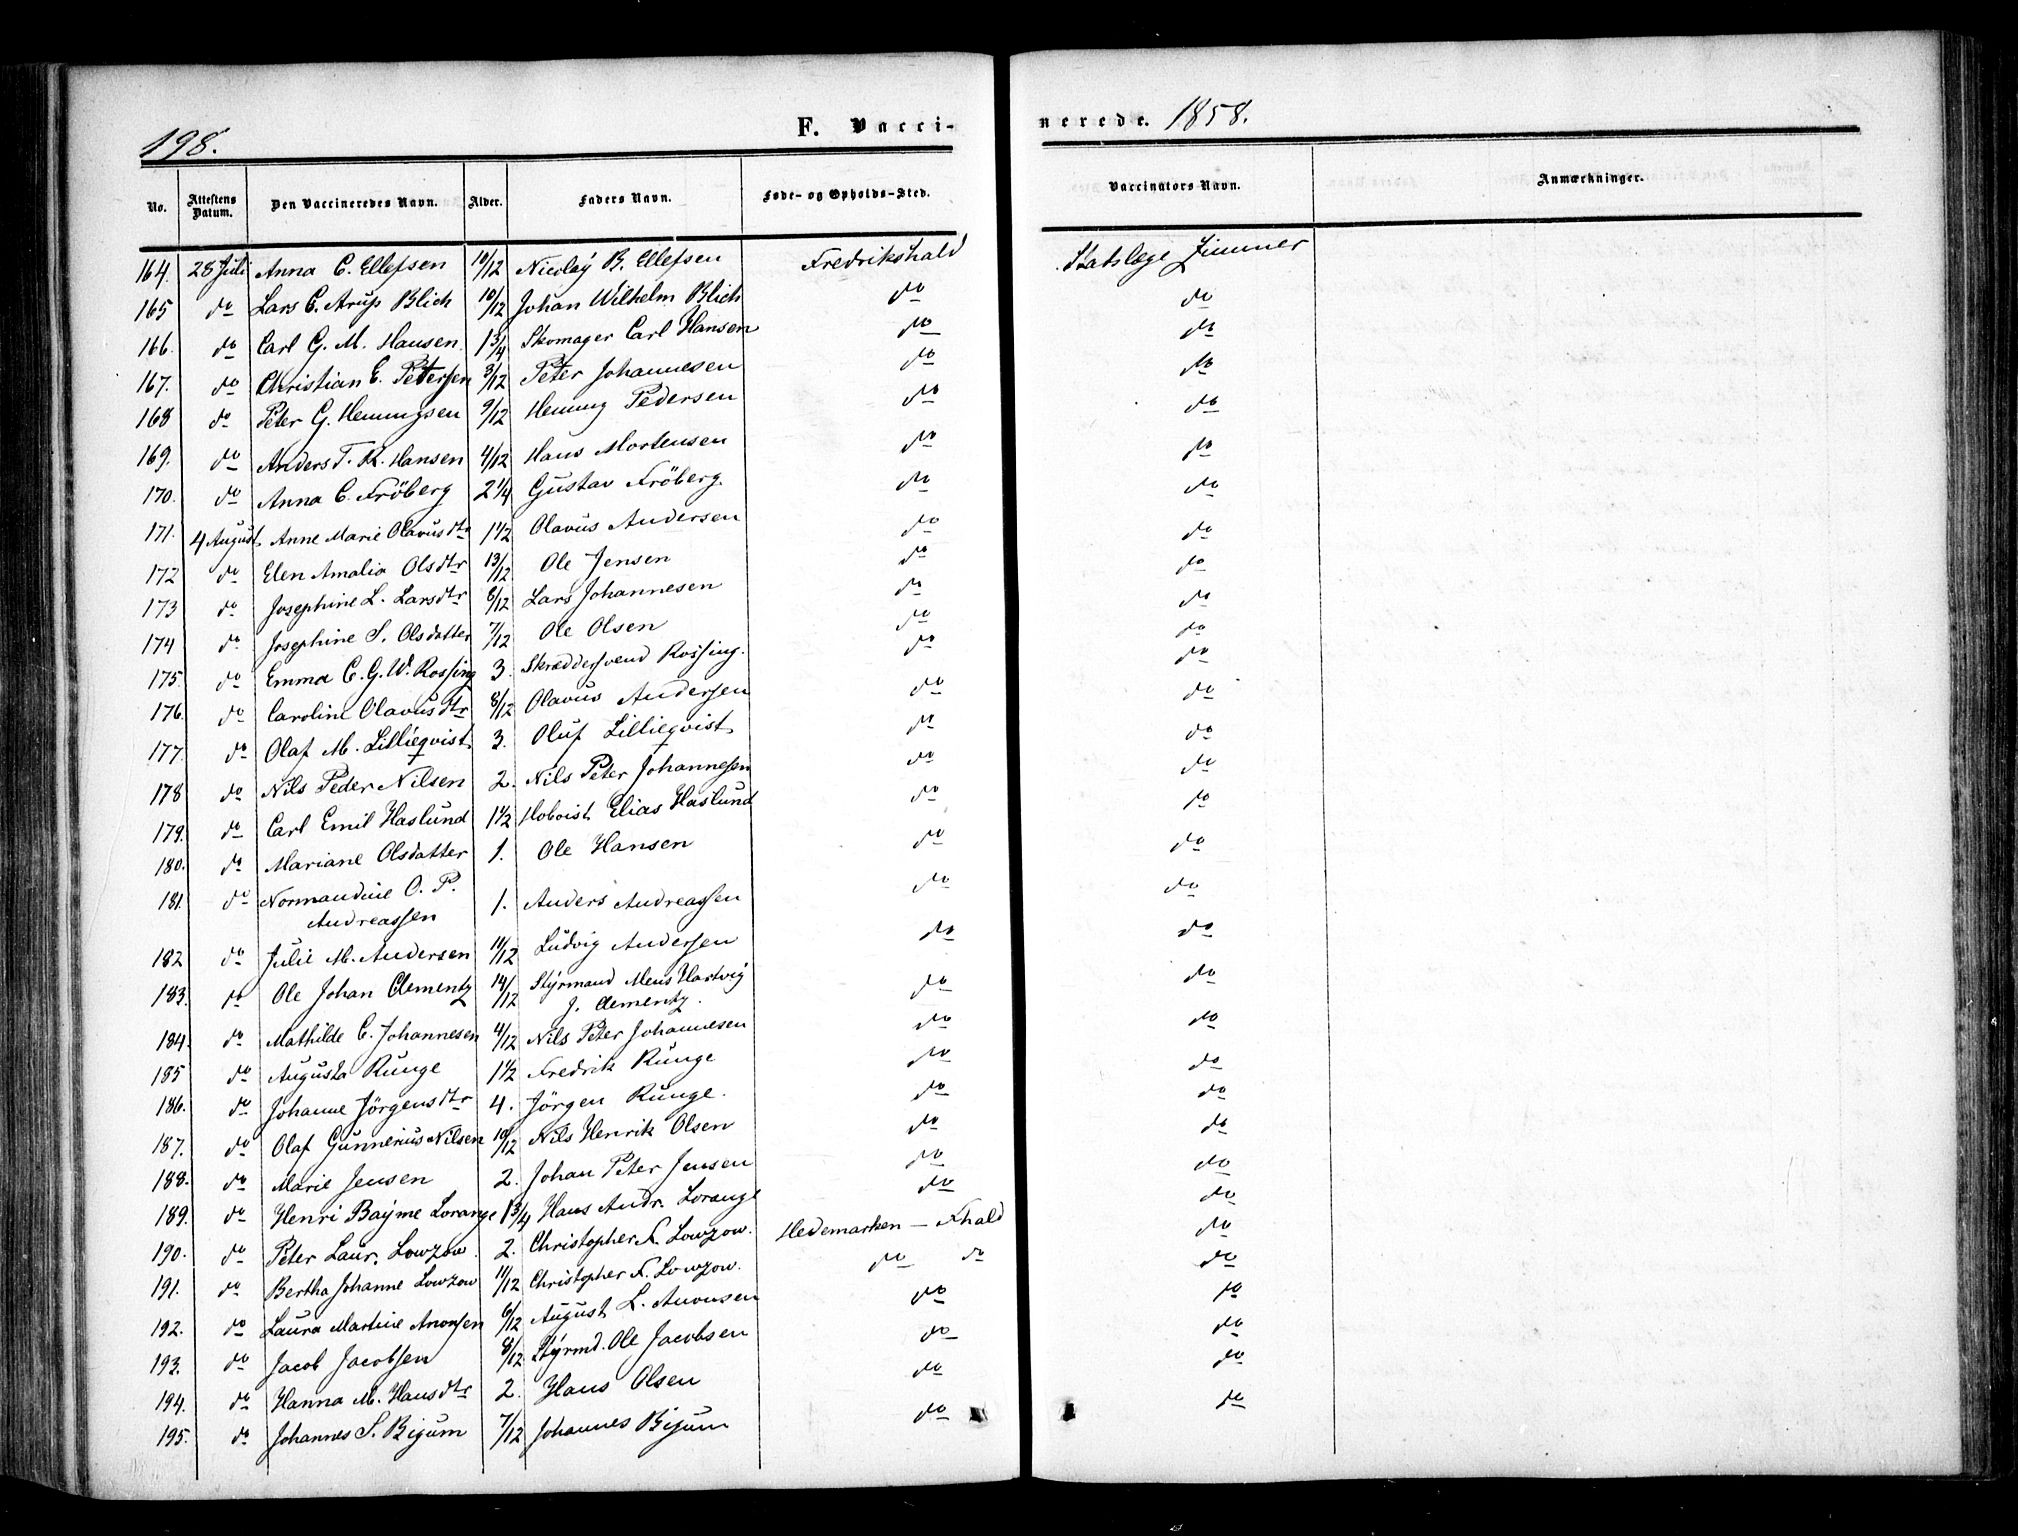 198.
F. Vacci-
nerede. 1858.
No. Attestens Datum. Den Vaccineredes Navn. Alder. Faders Navn. Føde- og Opholds-Sted. Vaccinators Navn. Anmærkninger.
164. 28 Juli Anna C. Ellefsen 10/12 Nicolaÿ B. Ellefsen Fredrikshald Zimmer
165 do Lars C. Arup Blich 10/12 Johan Wilhelm Blich do do
166. do Carl G. M. Hansen. 1 3/4 Skomager Carl Hansen do do
167. do Christian E. Petersen 3/12 Peter Johannesen do do
168 do Peter G. Hemmgsen 9/12 Heming Pedersen do do
169. do Anders T. R. Hansen 4/12 Hans Mortensen do do
170. do Anna C. Fröberg 2 1/4 Gustav Fröberg. do do
171. 4 August Anne Marie Olavusdtr 1 1/2 Olavus Andersen do do
172 do Elen Amalia Olsdtr 13/12 Ole Jensen do do
173 do Josephine L. Larsdtr 8/12 Lars Johannesen do do
174 do Josephine S. Olsdatter 7/12 Ole Olsen do do
175. do Emma C. G. W. Rossing 3. Skræddersvend Rossing. do do
176. do Caroline Olavusdtr 8/12 Olavus Andersen do do
177. do Olaf M. Lillieqvist 3. Oluf Lillieqvist do do
178 do Nils Peder Nilsen 2. Nils Peter Johannesen do do
179. do Carl Emil Haslund 1 1/2 Hoboist Elias Haslund do do
180. do Mariane Olsdatter 1. Ole Hansen do do
181. do Normandine O. P. Andreassen 1. Anders Andreassen do do
182 do Julie M. Andersen 11/12 Ludvig Andersen do do
183. do Ole Johan Clementz 14/12 Styrmand Mens Hartvig J. Clementz. do do
184. do Mathilde C. Johannesen 4/12 Nils Peter Johannesen do do
185 do Augusta Runge 1 1/2 Fredrik Runge do do
186. do Johanne Jörgensdtr 4. Jörgen Runge. do do
187. do Olaf Gunnerius Nilsen 10/12 Nils Henrik Olsen do do
188. do Marie Jensen 2. Johan Peter Jensen do do
189. do Henri Bayme Lorange 1 3/4 Hans Andr. Lorange do do
190. do Peter Laur. Lowzow. 2. Christopher F. Lowzow. Hedemarken – Fhald do
191. do Bertha Johanne Lowzow 11/12 Christopher F. Lowzow. do do do
192. do Laura Martine Anonsen 6/12 August L. Anonsen do do
193. do Jacob Jacobsen 8/12 Styrmd. Ole Jacobsen do do
194. do Hanna M. Hansdtr 2. Hans Olsen do do
195. do Johannes S. Bigum 7/12 Johannes Bigum do do